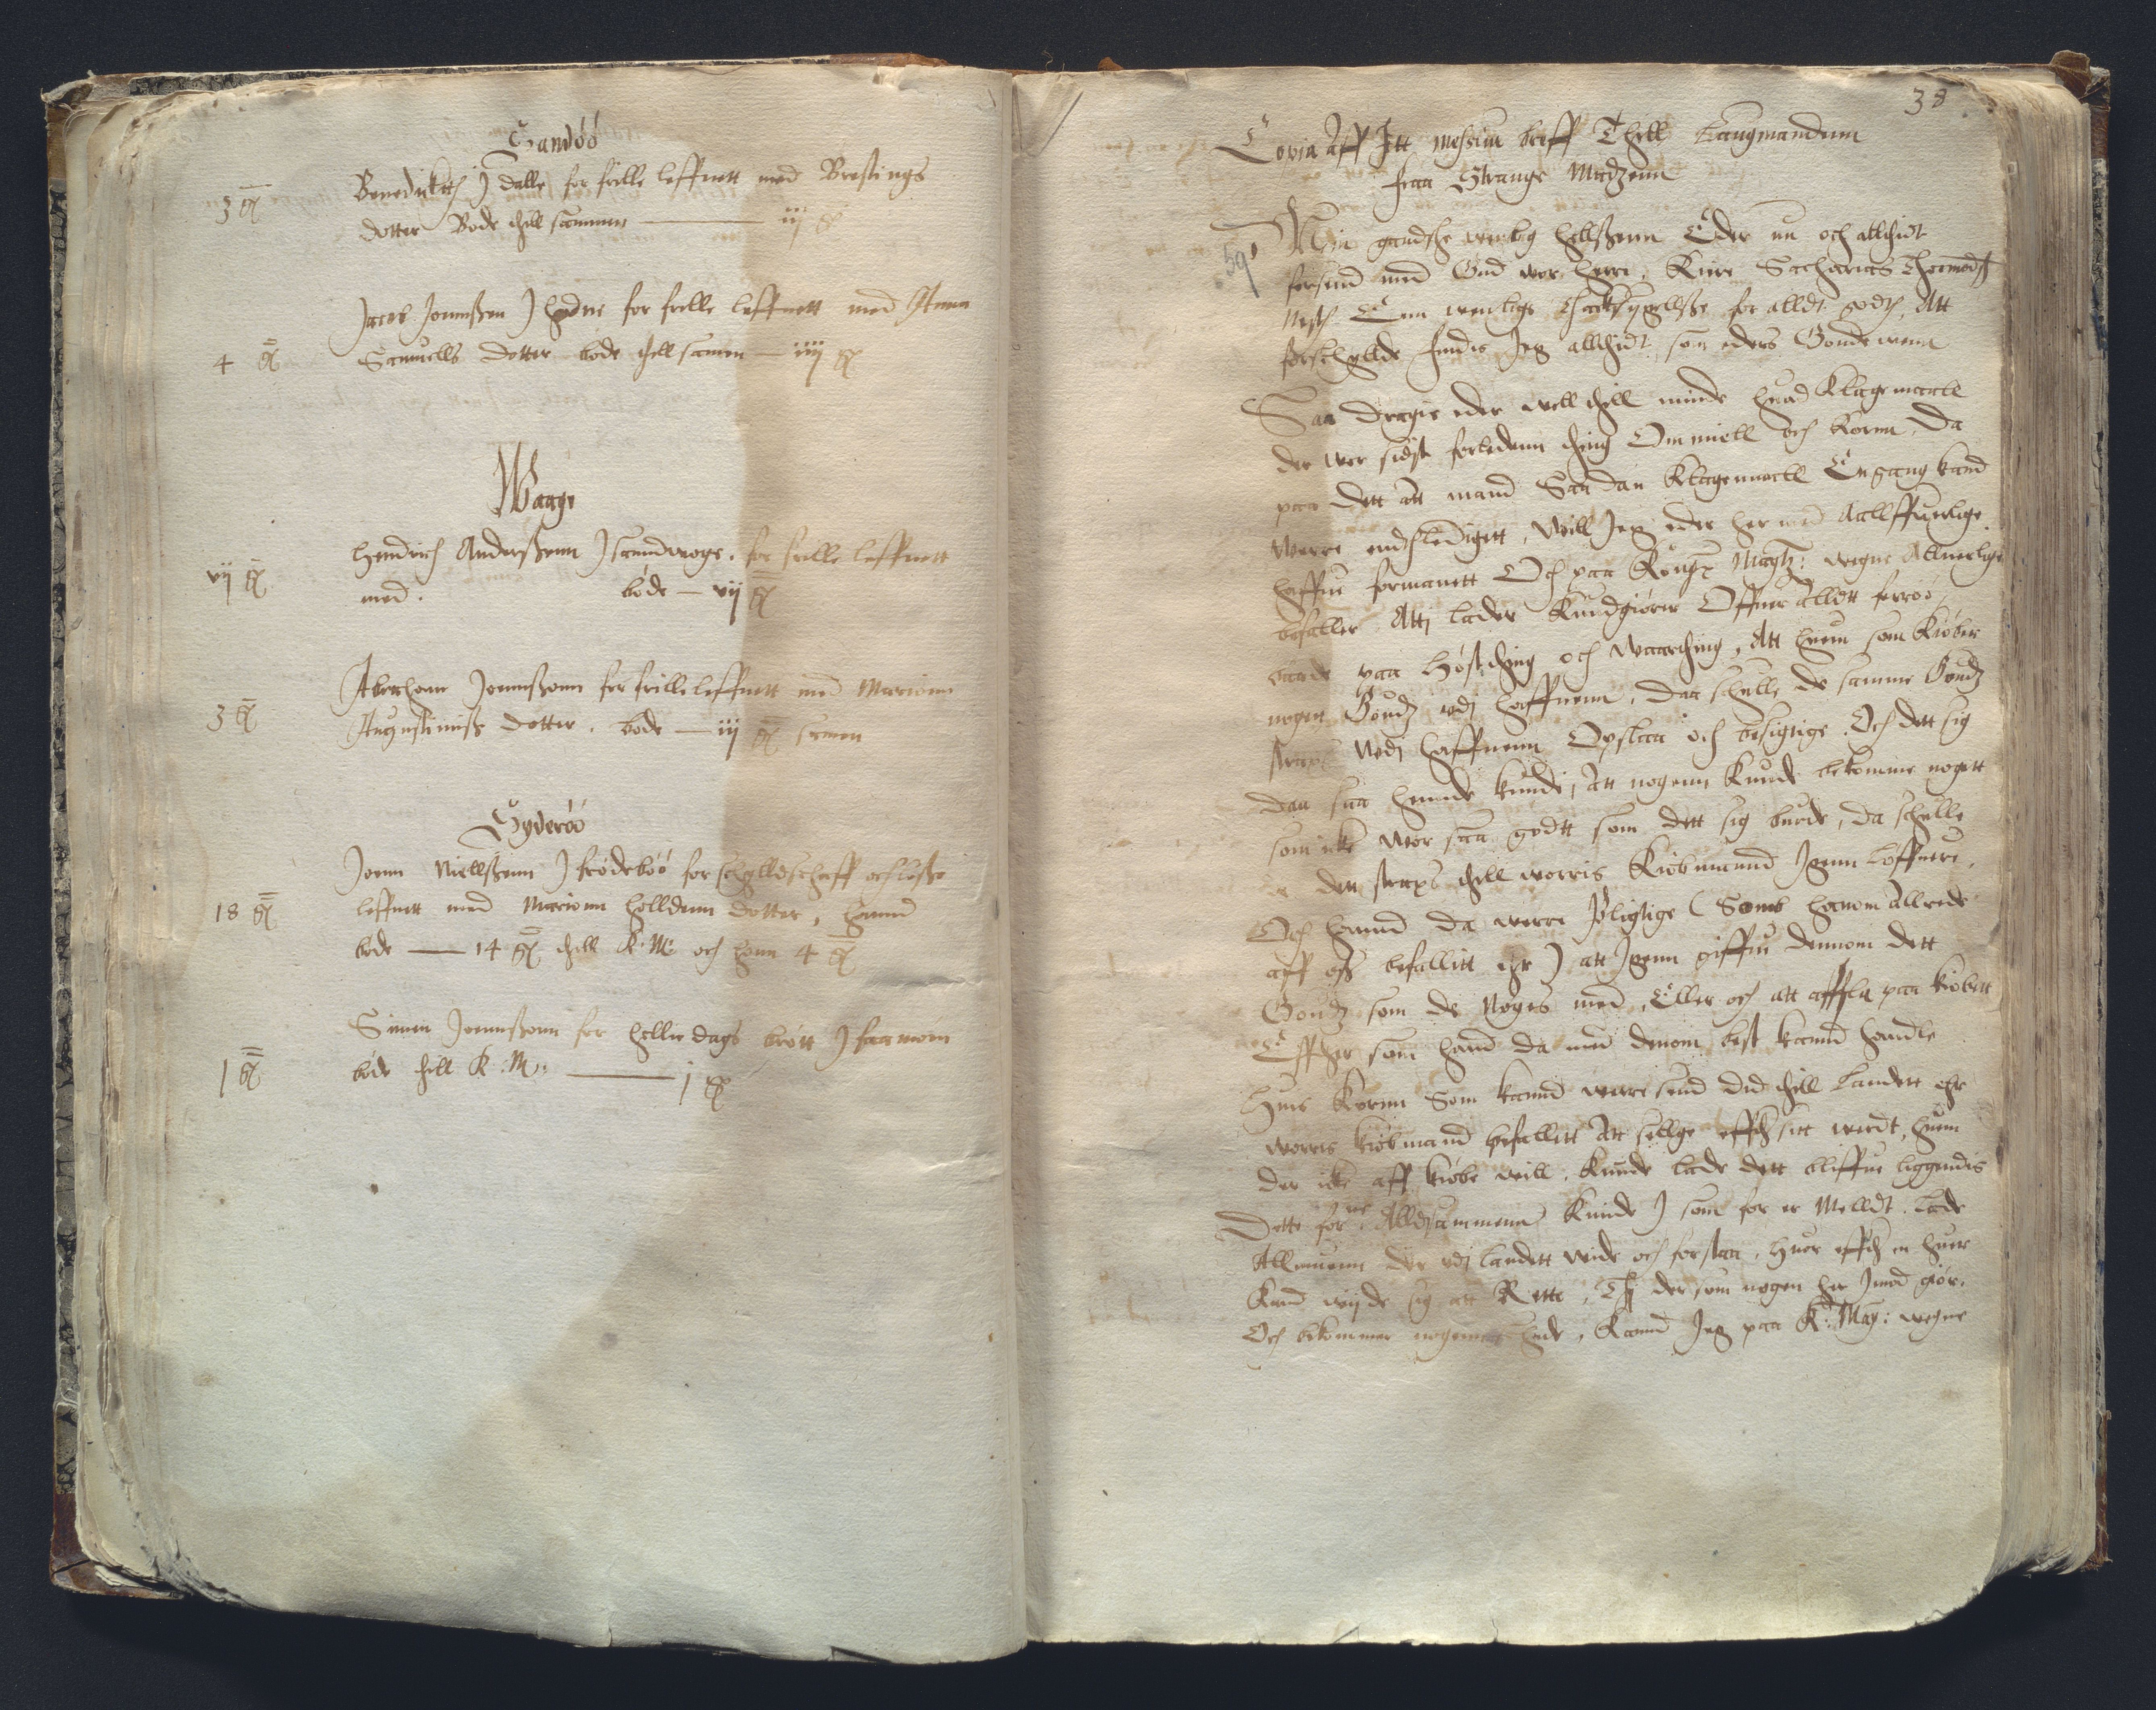 Sandöö
3 Benedichtt J dalle for frille leffnett med Brestings
dotter Bode thill sammen — iij
Jacob Joennßen J hødne for frelle leffnett med Anna
4 Samuells dotter bode thill samen — iiij
Waage
Hendrich Anderßenn J sanndwoge. for frille leffnett
vij med. böde — vij
Abraham Joennßonn for frille leffnett med Marienn
3 Augustinniß dotter. bode — iij samen
Syderöö
Joenn Niellßenn J frodeböö for schylldschaff och løsse
18 leffnett med Marienn Holldenn dotter, hannd
bode — 14 thill K. M. och honn 4
Simen Joennßonn for hellie dags brött J famoien
1 böde thill K: M: — j
38
Copia Aff Itt missiue breff Thill Laugmandenn
fraa Strange Madzenn
59
Min gandske wenlig hellßenn Eder nu och alltidt
forsend med Gud wor herre, Kiere Sacharias Thormodß
Nest Enn wenligh thacksygellße for alldt godt, Att
forschyllde findis Jeg alltidt som eders Gonde wenn
Saa dragis eder well thill minde huad Klagemaall
der wor sidst forledenn thing Om miell och Kornn, Da
paa dett att mand Saadan Klagemaall Engang kand
werre endtledigett, Will Jeg eder her med Aallffuerlige
haffue formanett Och paa Kong: Maytz: wegne Alluerlige
befaller Att J lader Kundgiörer Offuer alldt ferröö,
baade paa Höstthing och waarthing, Att huem som Kiöber
nogen Goudz udj haffnenn, Daa schulle de samme Goudz
straxs Udj haffnenn Opslaa och besigtige. Och dett sig
daa saa hennde kunde, Att nogenn Kunde bekomme nogett
som icke wor saa godtt som dett sig burde, da schulle
de dett straxs thill worris Kiöbmannd Jgenn löffuere.
Och hannd da werre Pligtige (Som hanom Allrede
aff oss befallitt ehr) att Jgenn giffue dennom dett
Goudz som de Noges med, Eller och att affsla paa kiöbett
Effther som hand da med denom best kannd handle
Huis Kornn Som kannd werre send did thill Landett ehr
worris kiöbmand befallitt Att sellge effther sitt werdt, huem
der icke aff kiöbe will. Kunde lade dett bliffue liggendis
Dette forne Alldtsammenn Kunde J som for er Melldt. Lade
Allmuenn der udj Landett wide och forstaa, Huor effther en huer
Kand wiide sig att Rette, Thi dersom nogen her Jmod giör.
Och bekommer nogenn skade, Kannd Jeg paa K: May: wegne